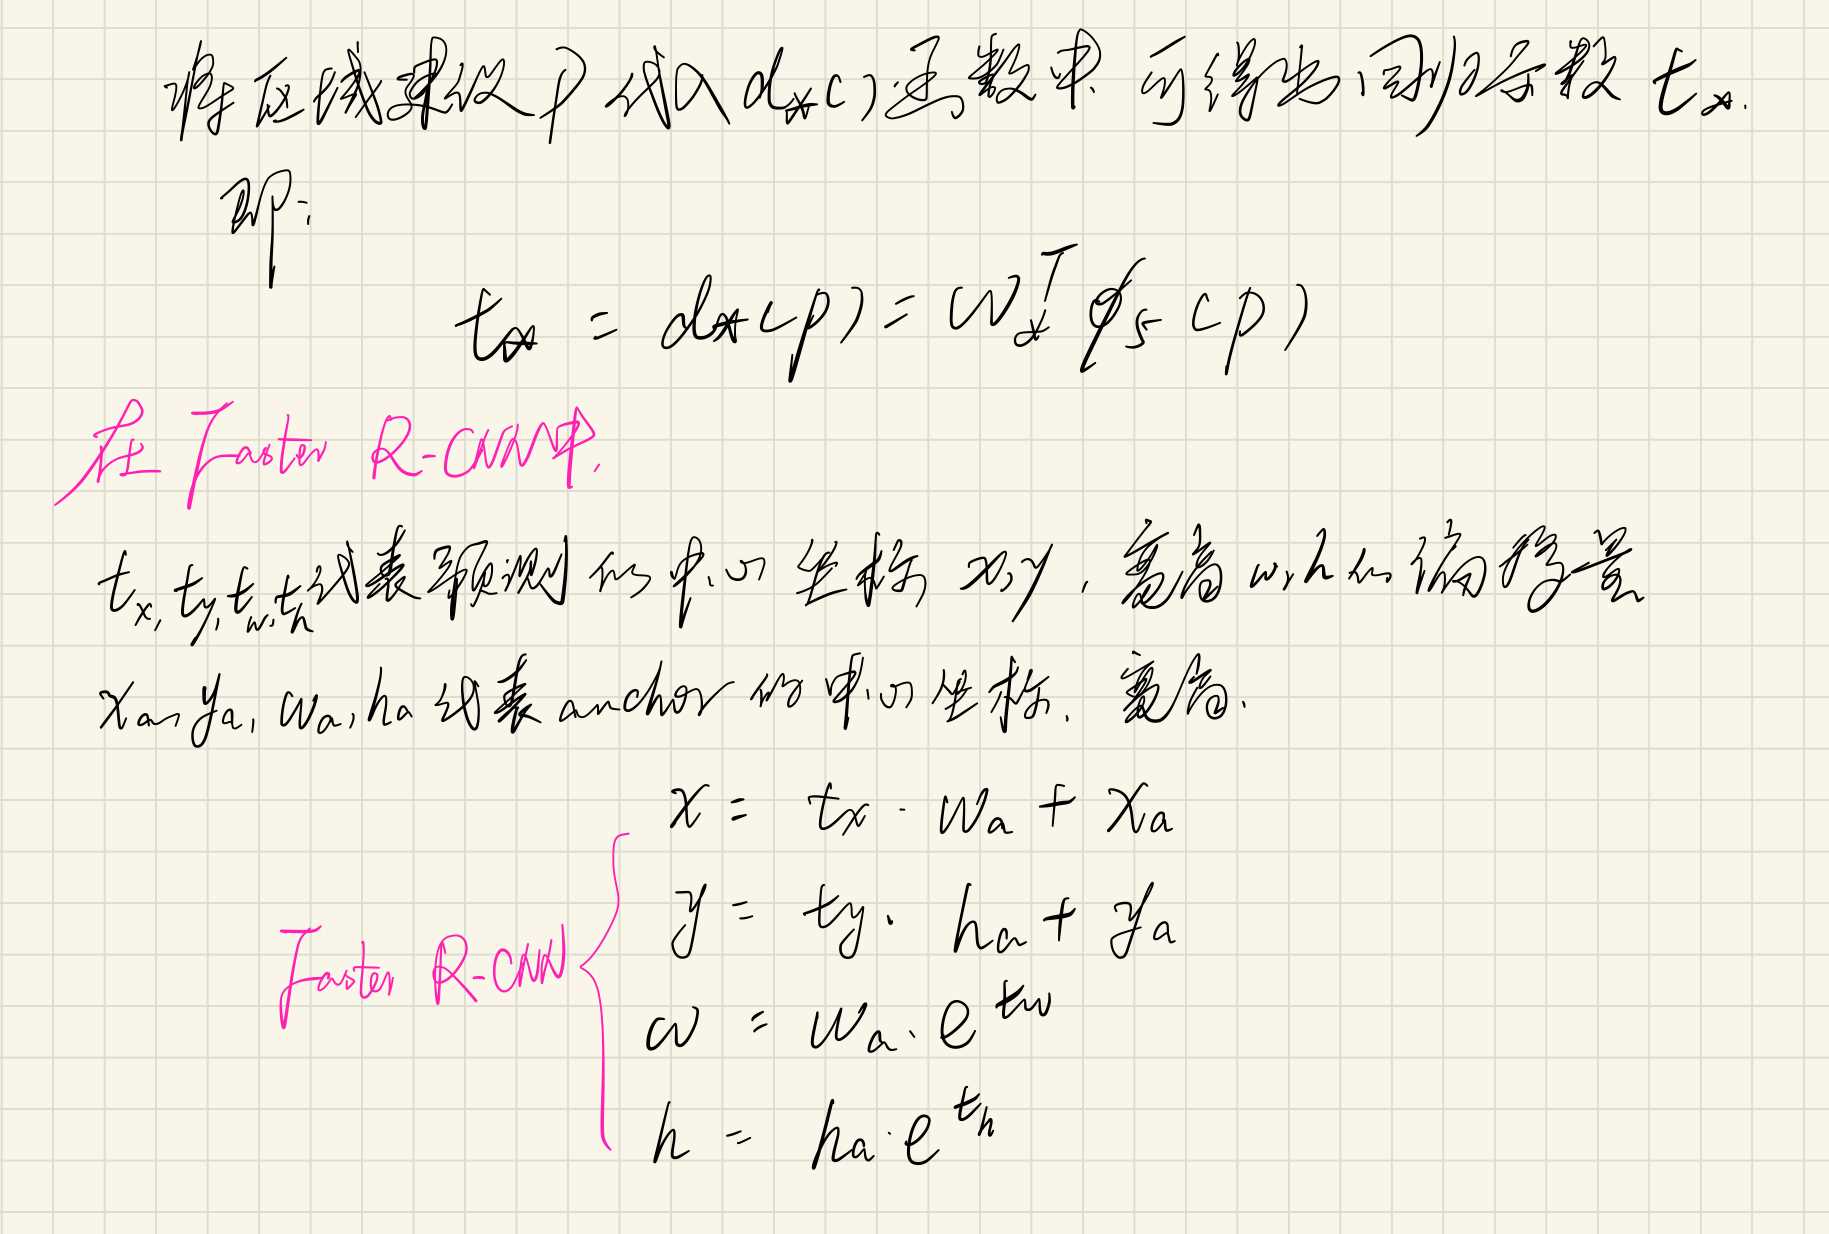 将区域建议P代入d*()函数中,可得出回归系数t*.
即:
t* = d*(p) = w*ᵀ φ5(p)
在Faster R-CNN中,
tx, ty, tw, th代表预测的中心坐标x,y,宽高w,h的偏移量
xa, ya, wa, ha代表anchor的中心坐标,宽高.
x = tx · wa + xa
y = ty · ha + ya
Faster R-CNN
w = wa · e^tw
h = ha · e^th